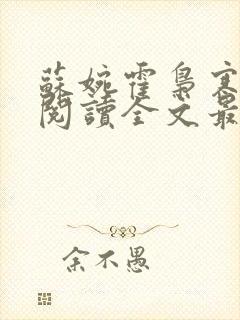 蘇婉霍梟寒
閱讀全文最
余不愚